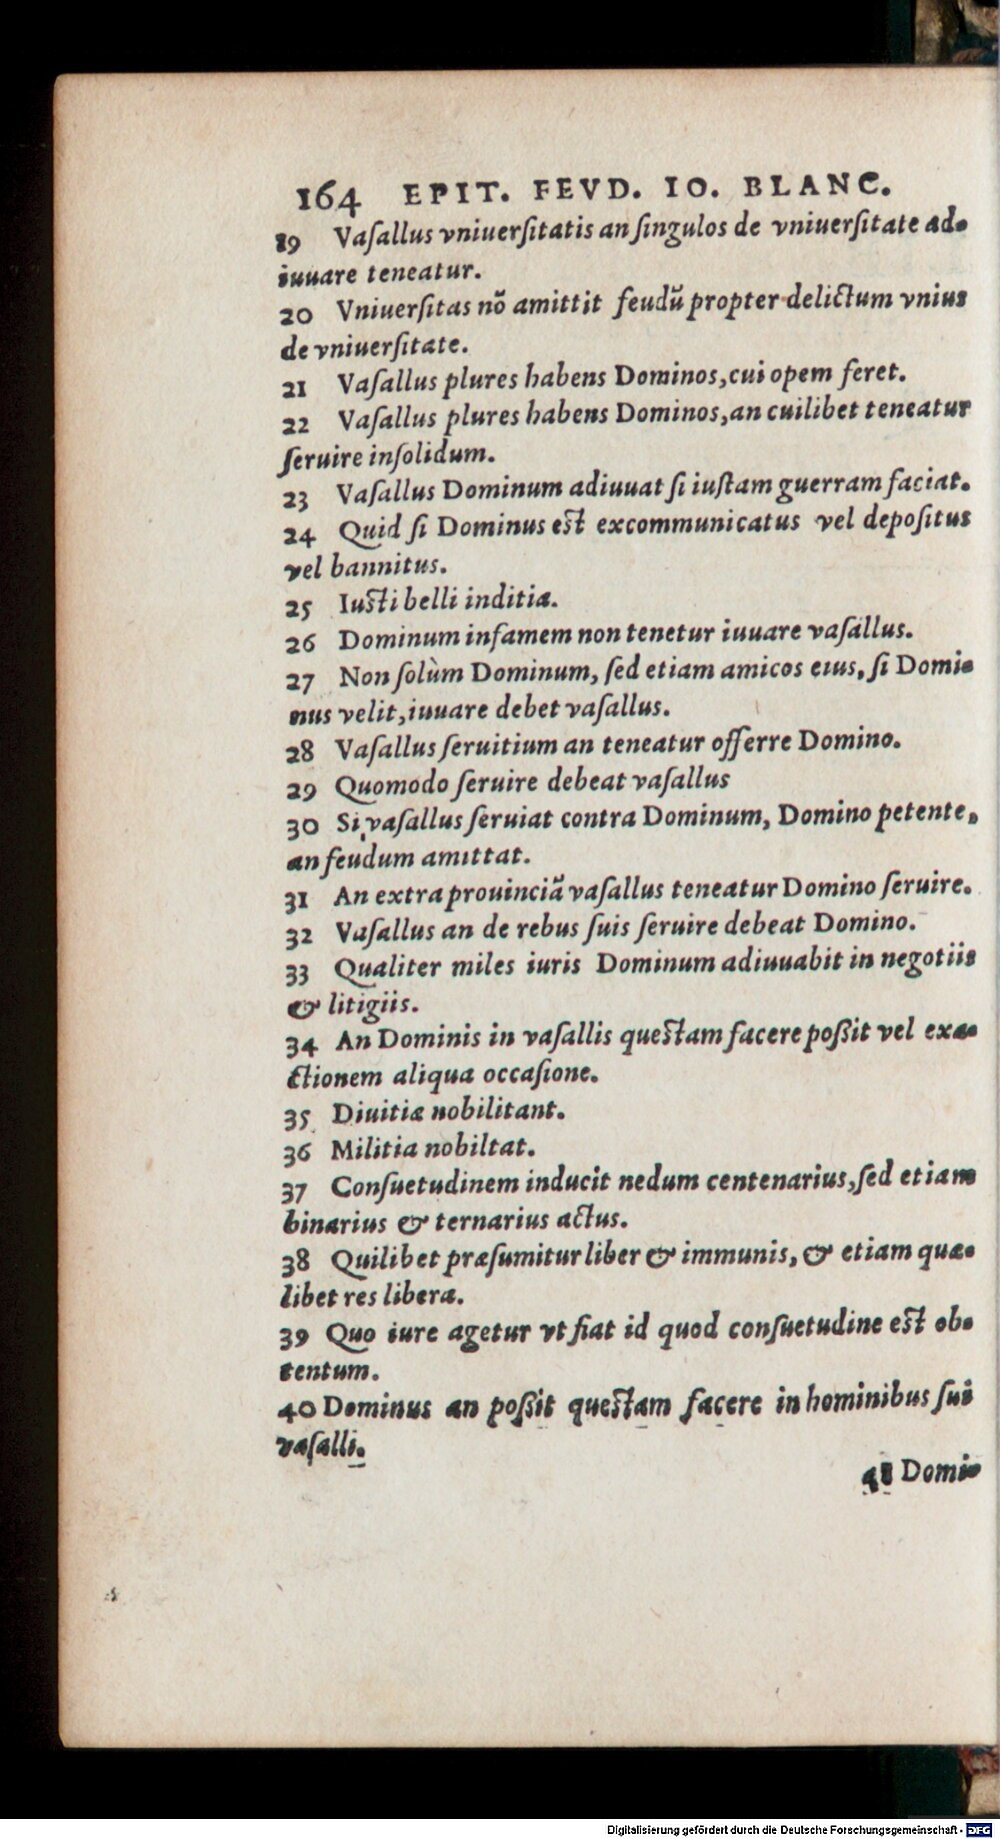 164 EPIT. FEVD. IO. BLANC.
19 Vaſallus vniuerſitatis an ſingulos de vniuerſitate ad-
iuuare teneatur.
20 Vniuerſitas nõ amittit feudũ propter delictum vnius
de vniuerſitate.
21 Vaſallus plures habens Dominos, cui opem feret.
22 Vaſallus plures habens Dominos, an cuilibet teneatur
ſeruire inſolidum.
23 Vaſallus Dominum adiuuat ſi iuſtam guerram faciat.
24 Quid ſi Dominus eſt excommunicatus vel depoſitus
vel bannitus.
25 Iuſti belli inditia.
26 Dominum infamem non tenetur iuuare vaſallus.
27 Non ſolùm Dominum, ſed etiam amicos eius, ſi Domi-
nus velit, iuuare debet vaſallus.
28 Vaſallus ſeruitium an teneatur offerre Domino.
29 Quomodo ſeruire debeat vaſallus
30 Si vaſallus ſeruiat contra Dominum, Domino petente,
an feudum amittat.
31 An extra prouinciã vaſallus teneatur Domino ſeruire.
32 Vaſallus an de rebus ſuis ſeruire debeat Domino.
33 Qualiter miles iuris Dominum adiuuabit in negotiis
& litigiis.
34 An Dominis in vaſallis queſtam facere poßit vel exa-
ctionem aliqua occaſione.
35 Diuitiæ nobilitant.
36 Militia nobiltat.
37 Conſuetudinem inducit nedum centenarius, ſed etiam
binarius & ternarius actus.
38 Quilibet præſumitur liber & immunis, & etiam quæ-
libet res libera.
39 Quo iure agetur vt fiat id quod conſuetudine eſt ob-
tentum.
40 Dominus an poßit queſtam facere in hominibus ſui
vaſalli.
41 Domi-
Digitalisierung gefördert durch die Deutsche Forschungsgemeinschaft - DFG